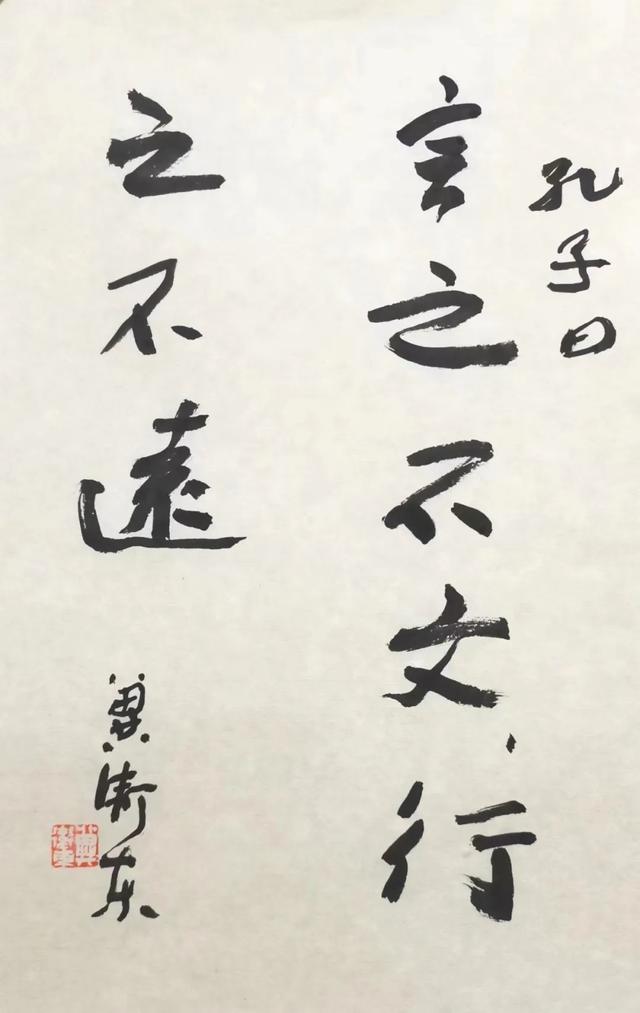 孔子曰
言之不文、行
之不遠
冀衛东